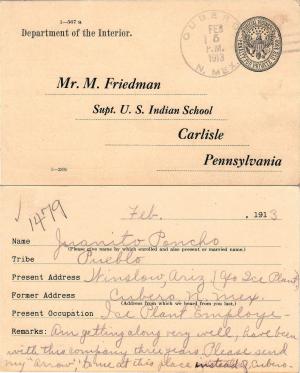 1-567 a
Department of the Interior.
CUBERO
FEB
15
P.M.
1913
N. MEX.
Mr. M. Friedman
Supt. U. S. Indian School
Carlisle
Pennsylvania
1479
Feb. 1913
Name Juanito Poncho
(Please give name by which enrolled and also present or married name.)
Tribe Pueblo
Present Address Winslow, Ariz (℅ Ice Plant)
(Address from which we heard from you last.)
Former Address Cubero, N. Mex.
Present Occupation Ice Plant Employe-
Remarks: Am getting along very well, have been
with this company three years. Please send
my "Arrow," to me at this place instead of Cubero.